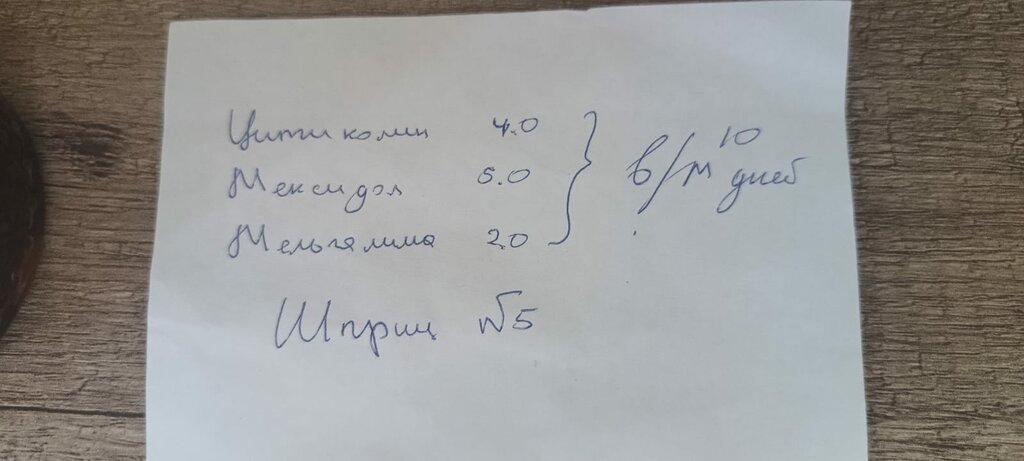 Цитиколин 4.0
Мексидол 5.0
Мельгамма 2.0
в/м 10 дней
Шприц №5